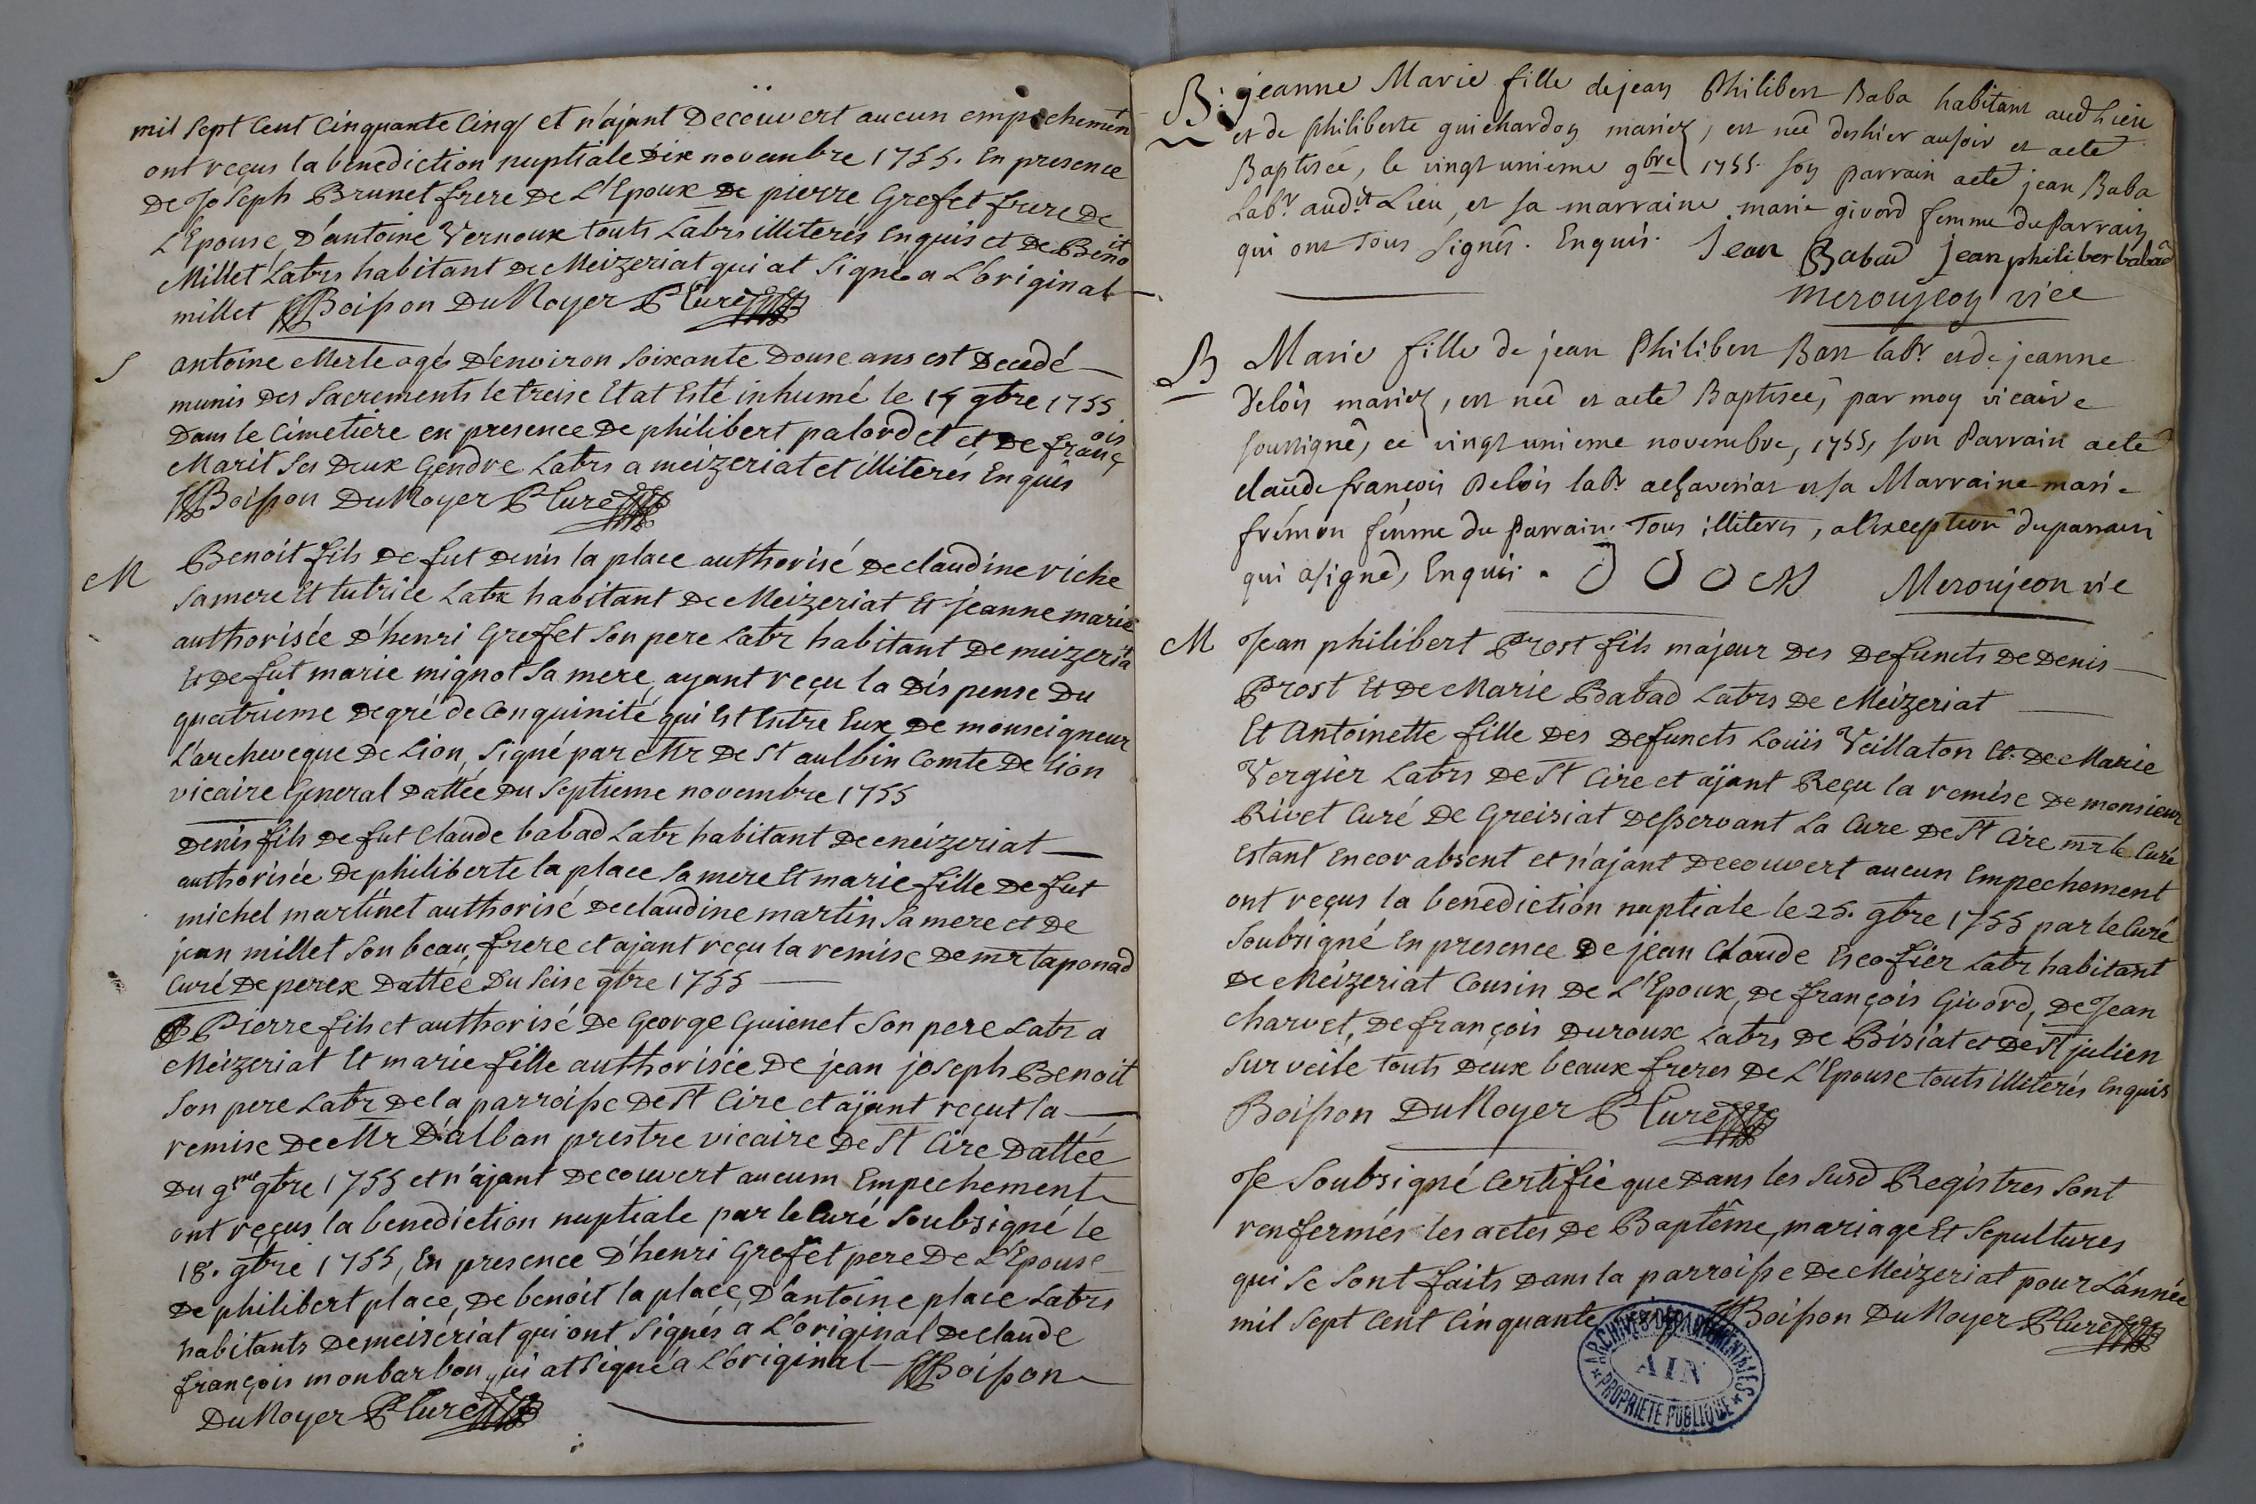 mil sept Cent Cinquante Cinq et n'ajant Decouvert aucun empechemen
ont reçus la benediction nuptiale Dix novembre 1755. En presence
De Joseph Brunet frere De L'Epoux De pierre Grefet frere De
L'Epouse, D'antoine Vernoux touts Labrs illiterés Enquis et De Benoit
Millet Labrs habitant De Meizeriat qui at Signé a L'original
millet Boisson DuNoyer P Curé
S
antoine Merle agé D'environ Soixante Douse ans est Decedé
munis Des Sacrements le treise Et at Esté inhumé le 14 9bre 1755
Dans le Cimetiere en presence De philibert palordet et De françois
Marit Ses Deux Gendre Labrs a meizeriat et illiterés Enquis
Boisson DuNoyer P Curé
M
Benoit fils De fut Denis la place authorisé De claudine riche
Sa mere Et tutrice Labr habitant De Meizeriat Et jeanne marie
authorisée D'henri Grefet Son pere Labr habitant De meizeria
Et De fut marie mignot Sa mere, ayant reçu la Dispense Du
quatrieme Degré de Conguinité qui Est Entre Eux De monseigneur
L'archeveque De Lion, Signé par Mr De St aulbin Comte De Lion
vicaire General Dattée Du Septieme novembre 1755
Denis fils De fut Claude babad Labr habitant De meizeriat
authorisée De philiberte la place Sa mere Et marie fille De fut
michel martinet authorisé De claudine martin Sa mere et De
jean millet Son beau frere et ajant reçu la remise De mr taponad
Curé De perex Dattée Du Seise 9bre 1755
Pierre fils et authorisé De George Guienet Son pere Labr a
Meizeriat Et marie fille authorisée De jean joseph Benoit
Son pere Labr De la parroisse De St Cire et ajant reçut la
remise De Mr D'alban prestre vicaire De St Cire Dattée
Du 9me 9bre 1755 et n'ajant Decouvert aucum Empechement
ont reçus la benediction nuptiale par le Curé Soubsigné le
18. 9bre 1755, En presence D'henri Grefet pere De L'Epouse
De philibert place, De benoit la place, D'antoine place Labrs
habitants De meizeriat qui ont Signés a L'original De claude
françois monbarbon qui at Signé a L'original Boisson
DuNoyer P Curé
B: jeanne Marie fille de jean Philibert Baba habitant aud Lieu
et de philiberte guichardon mariez, est née d'eshier au soir et a eté
Baptisée, le vingt unieme 9bre 1755. son parrain a eté jean Baba
Labr. audit Lieu, et sa marraine marie givord femme du Parrain
qui ont Tous signés. Enquis. Jean Babad Jean philiber babad
Meroujeon vice
B
Marie fille de jean Philibert Bon labr et de jeanne
Delois mariez, est née et a eté Baptisée, par moy vicaire
soussigné, ce vingt unieme novembre, 1755, son Parrain a eté
claude françois Delois labr a chaveriat et sa Marraine marie
frémon femme du Parrain. Tous illiteres, a l'exception du parrain
qui a signé, Enquis. Meroujeon vie
M
Jean philibert Prost fils majeur Des Defuncts De Denis
Prost Et De Marie Babad Labrs De Meizeriat
Et Antoinette fille Des Defuncts Louis Veillaton Et De Marie
Vergier Labrs De St Cire et ajant Reçu la remise De monsieur
Rivet Curé De Greisiat Desservant La Cure De St Cire mr le Curé
Estant Encor absent et n'ajant Decouvert aucun Empechement
ont reçus la benediction nuptiale le 25. 9bre 1755 par le Curé
Soubsigné En presence De jean Claude Escofier Labr habitant
De Meizeriat Cousin De L'Epoux, De françois Givord, De Jean
Charvet, De françois Duroux Labrs De Bisiat et De St julien
Sur veile touts Deux beaux freres De L'Epouse touts illiterés Enquis
Boisson DuNoyer P Curé
Je Soubsigné Certifie que Dans les Susd Registres Sont
renfermés les actes De Baptême, mariage Et Sepultures
qui Se Sont faits Dans la parroisse De Meizeriat pour L'année
mil Sept Cent Cinquante Boisson DuNoyer P Curé
ARCHIVES DÉPARTEMENTALES
AIN
PROPRIÉTÉ PUBLIQUE